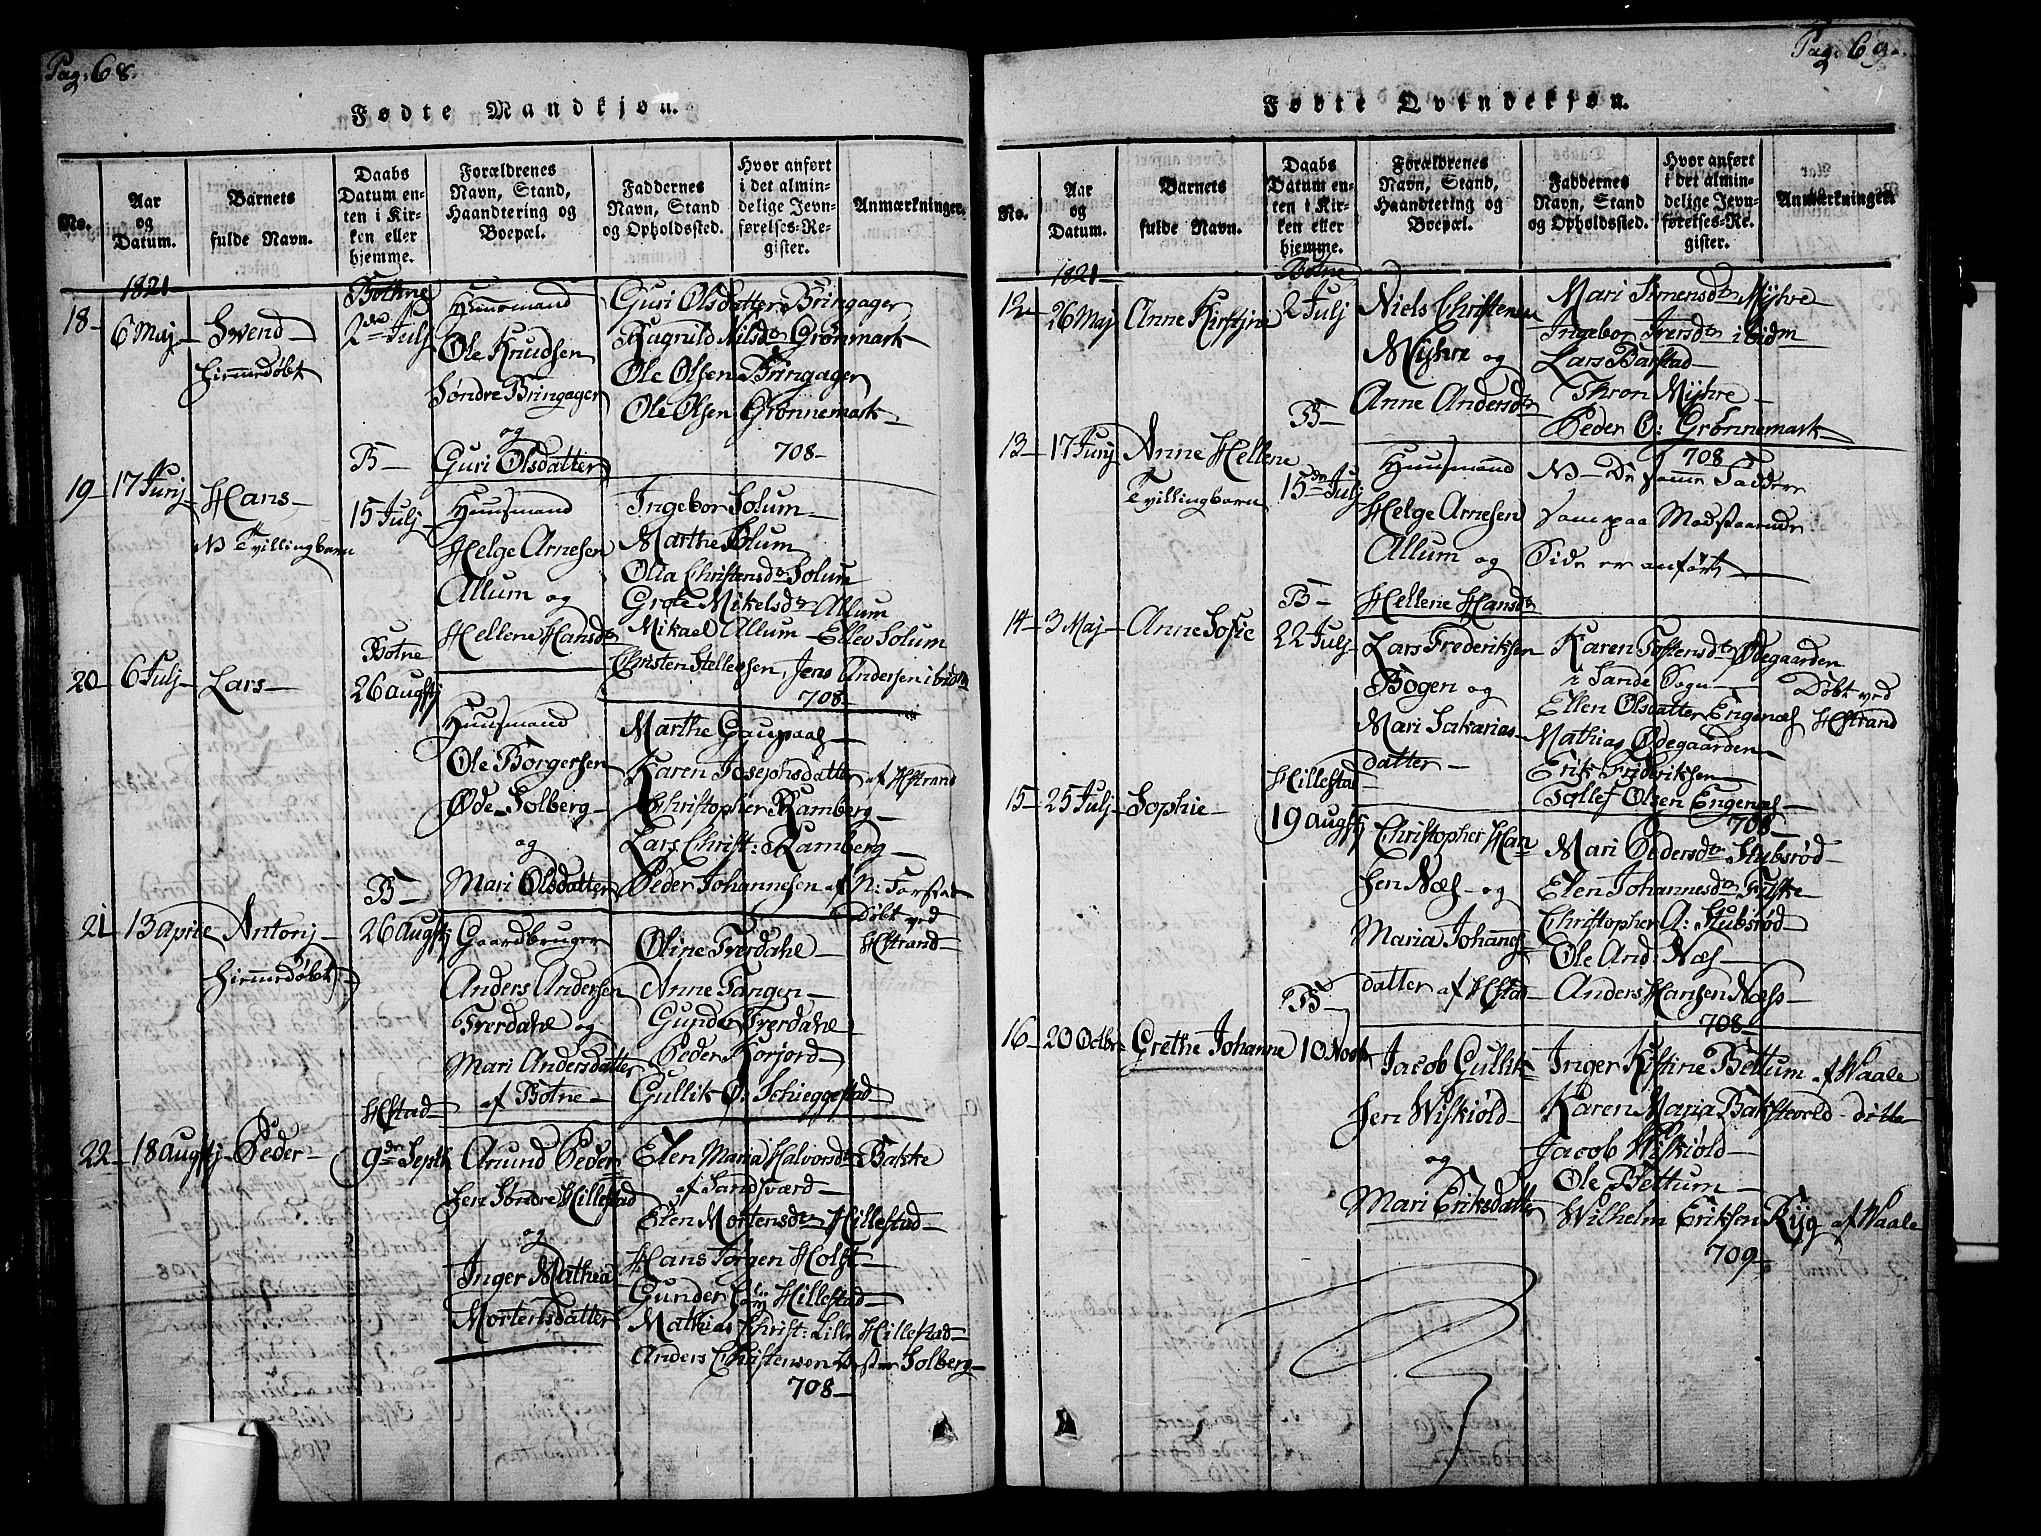 Pag: 68.
Fødte Mandkjøn.
No.
Aar
og
Datum.
Barnets
fulde Navn.
Daabs
Datum en-
ten i Kir-
ken eller
hjemme.
Forældrenes
Navn, Stand,
Haandtering og
Boepæl.
Faddernes
Navn, Stand
og Opholdssted.
Hvor anført
i det almin-
delige Jevn-
førelses-Re-
gister.
Anmærkninger.
1821
18 6 Maj Svend
Hjemmedøbt
Bothne
2den Julj
Huusmand
Ole Knudsen
Søndre Bringager
og
Guri Olsdatter
Guri Olsdatter Bringager
Ragnild Nilsdtr Grønmark
Ole Olsen Bringager
Ole Olsen Grønnemark
708
19 17 Junj Hans
NB Tvillingbarn
B
15 Julj
Huusmand
Helge Arnesen
Allum og
Hellene Hansdtr
Ingebor Solum
Marthe Solum
Olia Christensdtr Solum
Grete Mikelsdtr Allum
Mikael Allum Ellev Solum
Christen Stellefsen, Jens Andersen ibidm
708
20 6 Julj Lars
Botne
26 Augstj
Huusmand
Ole Borgersen
Øde Solberg
og
Mari Olsdatter
Marthe Gaupaas
Karen Josephsdatter af Hstrand
Christopher Ramberg
Lars Christ: Ramberg
Peder Johannesen af N:
21 13 April Antonj
Hjemmedøbt
B
26 Augstj
Gaardbruger
Anders Andersen
Frerdahl og
Mari Andersdatter
af Botne
Oline Frerdahl
Anne Tangen
Gunder Frerdahl
Peder Korjord
Gullik O: Schieggestad
Døbt ved
Hstrand
22 18 Augstj Peder
Hstad
9de Septbr
Amund Peder
sen Søndre Hillestad
og
Inger Mathea
Mortensdatter
Elen Maria Halvorsdtr Bakke
af Sandsværd
Elen Mortensdtr Hillestad
Hans Jørgen Holst
Gunder Hillestad
Mathias Christ: Lille Hillestad
Anders Christensen Solberg
708
Pag: 69.
Fødte Qvindekjøn.
No.
Aar
og
Datum.
Barnets
fulde Navn.
Daabs
Datum en-
ten i Kir-
ken eller
hjemme.
Forældrenes
Navn, Stand,
Haandtering og
Boepæl.
Faddernes
Navn, Stand
og Opholdssted.
Hvor anført
i det almin-
delige Jevn-
førelses-Re-
gister.
Anmærkninger
1821
12 26 Maj Anne Kirstine
Botne
2 Julj
Niels Christensen
Myhre og
Anne Andersdtr
Mari Simensdtr Myhre
Ingebor Iversdtr ibidm
Lars Barstad
Thron Myhre
Peder O: Grønnemark
708
13 17 Junj Anne Hellene
Tvillingbarn
B
15de Julj
Huusmand
Helge Arnesen
Allum og
Hellene Hansdtr
NB De samme Faddere
som paa Modstaaende
Side er anført
14 3 Maj Anne Sofie
B
22 Julj
Lars Frederiksen
Bogen og
Mari Sakarias-
datter
Karen Toftensdtr Ødegaarden
i Sande Sogn
Ellen Olsdatter Engenæs
Mathias Ødegaarden
Erik Frideriksen
Tollef Olsen Engenæs
708
Døbt ved
Hstrand
15 25 Julj Sophie
Hillestad
19 Augstj
Christopher Han
sen Næs og
Maria Johannes
datter af Hstad
Mari Pedersdtr Stubsrød
Elen Johannesdtr Fuske
Christopher A: Stubsrød
Ole And: Næs
Anders Hansen Næss
708
16 20 Octbr Grethe Johanne
B
10 Novbr
Jacob Gullik
sen Wiskiöld
og
Mari Eriksdatter
Inger Kistine Bettum af Waale
Karen Maria Bakskvold ditto
Jacob Wiskiöld
Ole Bettum
Wilhelm Eriksen Ryg af Waale
709